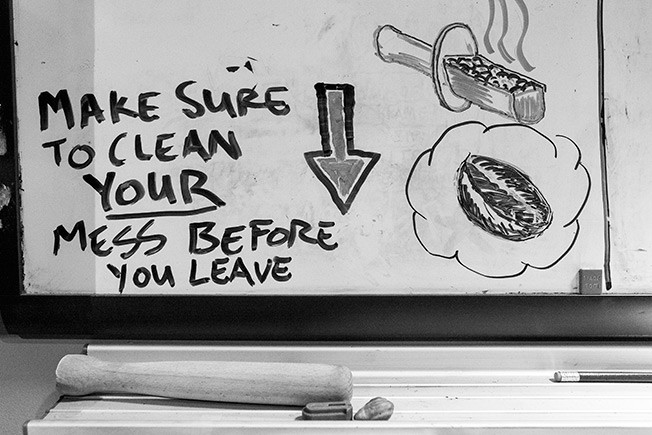 MAKE SURE
TO CLEAN
YOUR
MESS BEFORE
YOU LEAVE